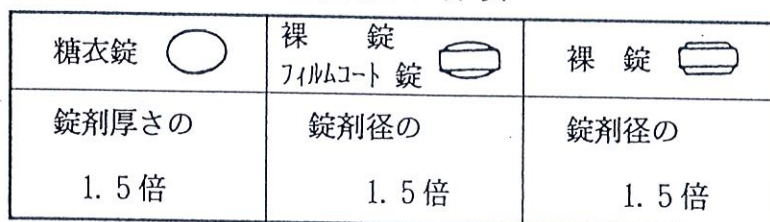 糖衣錠
裸　　錠
フィルムコート 錠
裸　錠
錠剤厚さの
1. 5倍
錠剤径の
1. 5倍
錠剤径の
1. 5倍